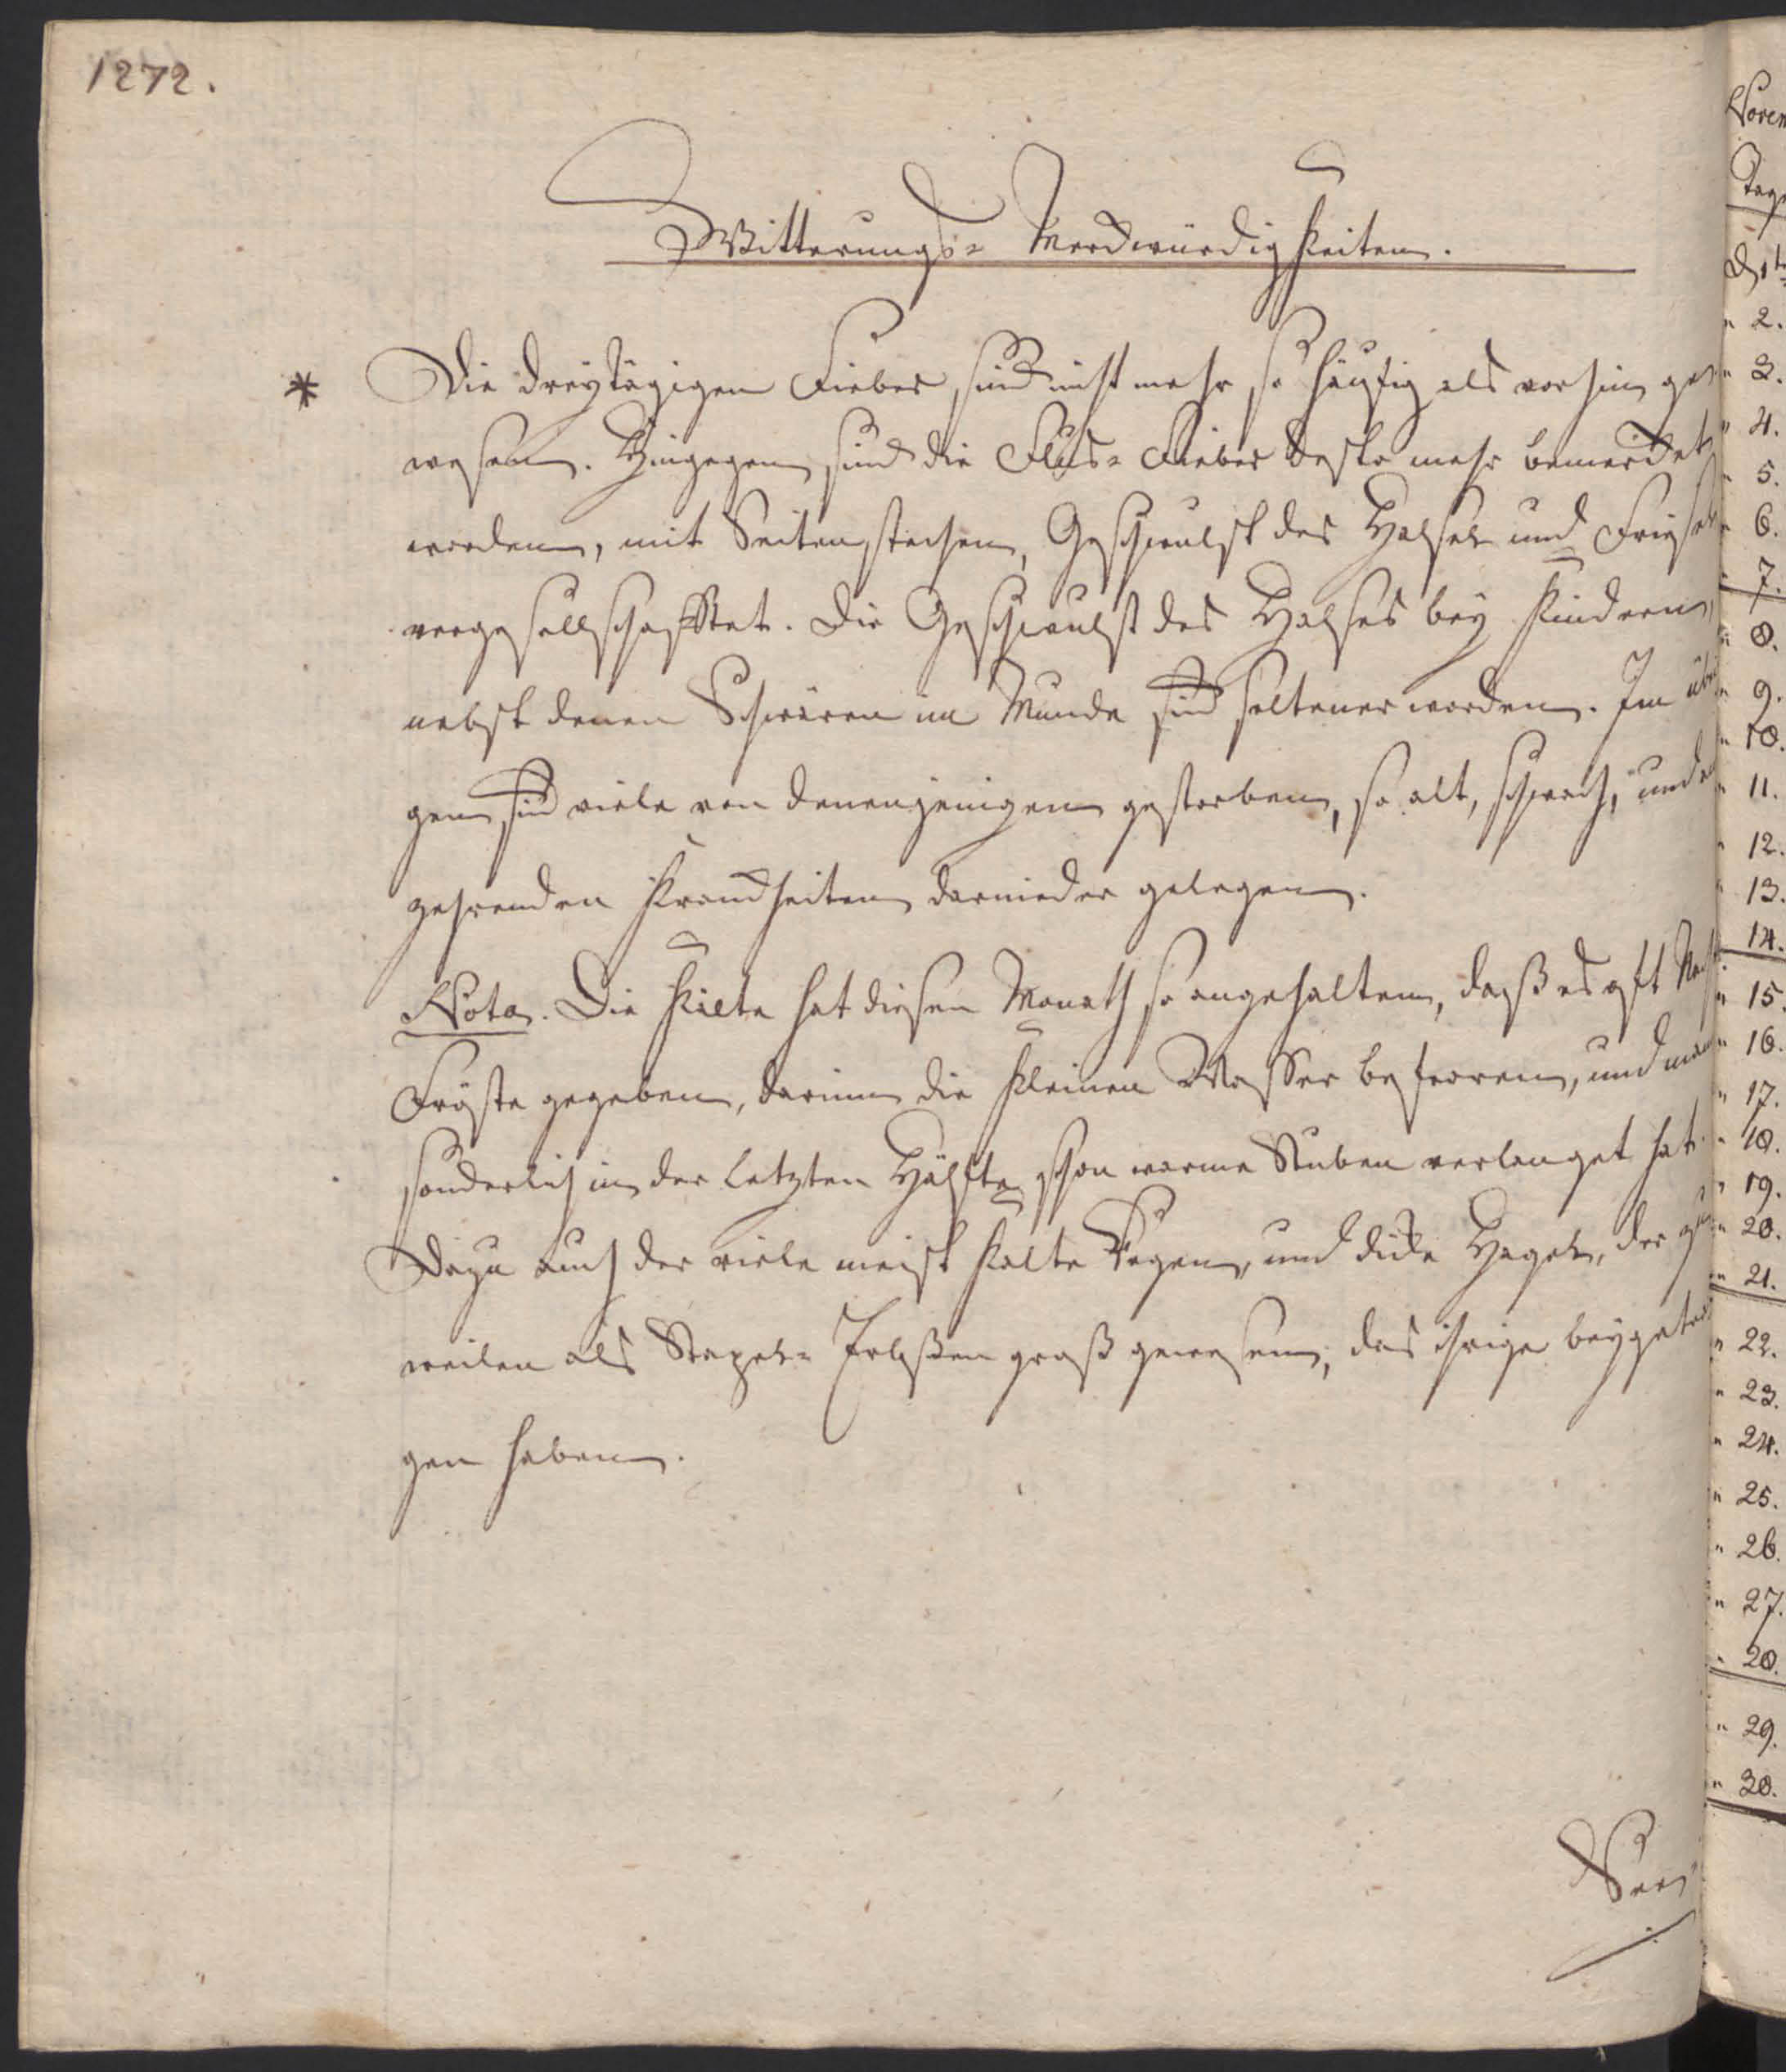 1272.
Witterungs= Merckwürdigkeiten.
* Die dreytägigen Fieber sind nicht mehr so häufig als vorhin ge=
wesen. Hingegen sind die Flus= Fieber desto mehr bemercket
worden, mit Seitenstechen, Geschwulst des Halses und Friesel
vergesellschafftet. Die Geschwulst des Halses bey Kindern,
nebst denen Schwären im Munde sind seltener worden. Im übri
gen sind viele von denenjenigen gestorben, so alt, schwach, und an
zehrenden Kranckheiten darnieder gelegen.
Nota. Die Kälte hat diesen Monath so angehalten, daß es oft Nacht
Fröste gegeben, darinn die kleinen Wasser befroren, und man
sonderlich in der letzten Hälfte schon warme Stuben verlanget hat.
Dazu auch der viele meist kalte Regen, und dicke Hagel, der
weilen als Erbßen groß gewesen, das ihrige beygetra
gen haben.
Novem
Tag
D 1t
" 2.
" 3.
" 4.
" 5.
" 6.
" 7.
" 8.
" 9.
" 10.
" 11.
" 12.
" 13.
" 14.
" 15.
" 16.
" 17.
" 18.
" 19.
" 20.
" 21.
" 22.
" 23.
" 24.
" 25.
" 26.
" 27.
" 28.
" 29.
" 30.